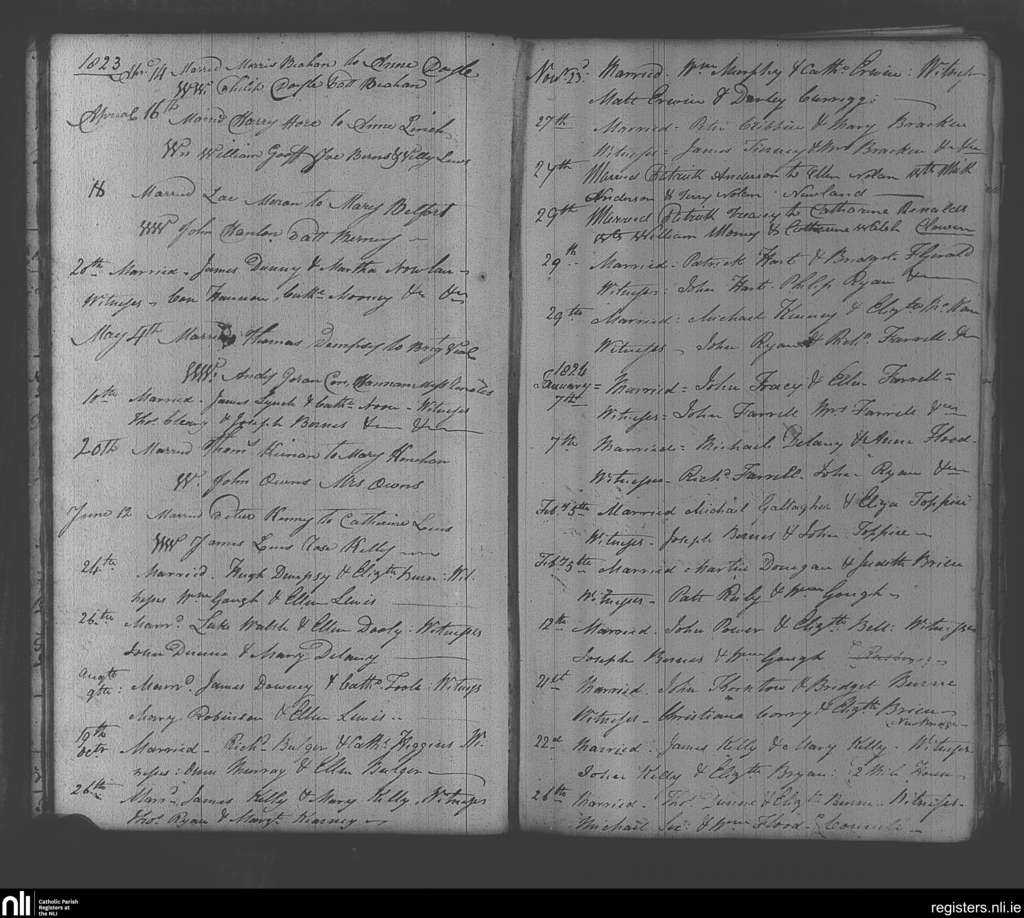 1823
14 Married Morris Beahan to Anne Doyle
WW Philip Doyle Patt Beahan
Apreal 16th Married Harry Hoze to Anne Linch
Ws William Gooff Joe Burns & Nelly Lewis
18 Married Lac Moran to Mary Belfort
WW John Hanlon Patt Berney
20th Married James Dunny & Martha Nowlan
Witnesses Con Hannan, Cathe Mooney &c &c
May 4th Married Thomas Dempsy to Bridg
WWs Andy Goran Con Hannan
10th Married James Lynch & Cathe Witnesses
Thos Cleary & Joseph Burnes &c &c
20th Married Thoms Kirinan to Mary Honohan
W. John Owens Mrs Owens
June 12 Married Peter Kenny to Catherine Lewis
WW James Lewis Rose Kelly
24th Married Hugh Dempsy & Elizth Burn: Wit
nesses Wm Gaugh & Ellen Lewis
26th Marrd Luke Walsh & Ellen Dooly. Witnesses
John Dunne & Mary Delany
Augth 9th: Marrd James Downey & Cathe Toole: Witnesses
Mary Robinson & Ellen Lewis
19th Octr Married Richd Bulger & Cathe Higgins Wi
nesses: Owen Murray & Ellen Bulger
26th Marrd James Kelly & Mary Kelly. Witnesses
Thos Ryan & Margt Kearney
Novr 13th Married Wm Murphy & Cathe Erwin: Witnesses
Matt Erwin & Darley
27th Married Peter Cribbin & Mary Bracken
Witnesses James Tierney & Mrs Bracken &c &c
27th Married Patrick Anderson to Ellen Nolan
Anderson & Nolan Newland
29th Married Patrick to Catharine
William & Catherine Welsh
29th Married Patrick Hart & Bridget
Witnesses: John Hart Philip Ryan &c
29th Married Michael Kenney & Elizth
Witnesses John Ryan & Richd Farrell &c
1824
January 7th Married John Tracy & Ellen Farrell
Witnesses: John Farrell Mrs Farrell &c
7th Married Michael Delany & Anne Flood
Witnesses Richd Farrell John Ryan &c
Feb 5th Married Michael Gallagher & Eliza Toppin
Witnesses Joseph Burnes & John Toppin
Feb 5th Married Martin Donegan & Judith Brien
Witnesses Patt & Wm Gough
12th Married John Power & Elizth Bell: Witnesses
Joseph Burnes & Wm Gaugh
21st Married John Thornton & Bridget Burne
Witnesses Christiana Corry & Elizth Brien
Newbridge
22d Married James Kelly & Mary Kelly Witnesses
John Kelly & Elizth Bryan: 2 Mile House
26th Married Thos Dunne & Elizth Burne Witnesses
Michael & Wm Flood
nli Catholic Parish
Registers at
the NLI
registers.nli.ie